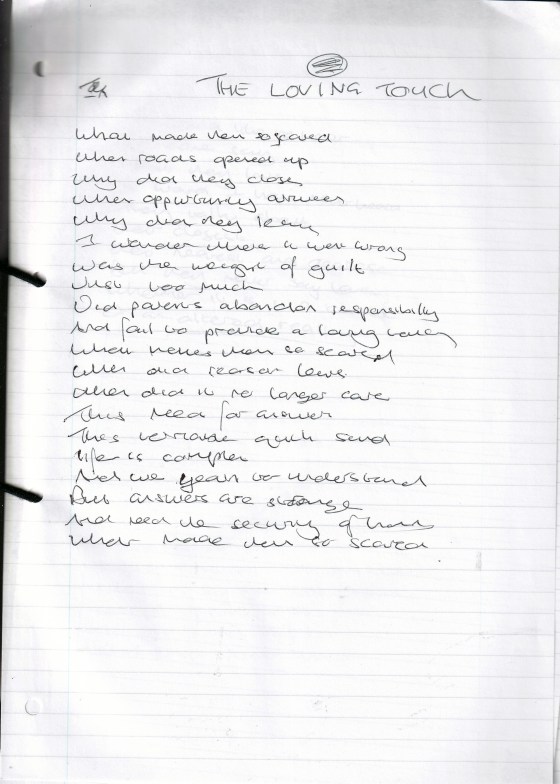 THE LOVING TOUCH
What made them so scared
When roads opened up
Why did they close
When opportunity arrives
Why did they leave
I wonder where it went wrong
Was the weight of guilt
Just too much
Did parents abandon responsibility
And fail to provide a loving
What makes them so scared
When did reason leave
When did it no longer care
This need for answer
This terrible guilt
Life is complex
And we yearn to understand
But answers are strange
And need the security of
What made them so scared